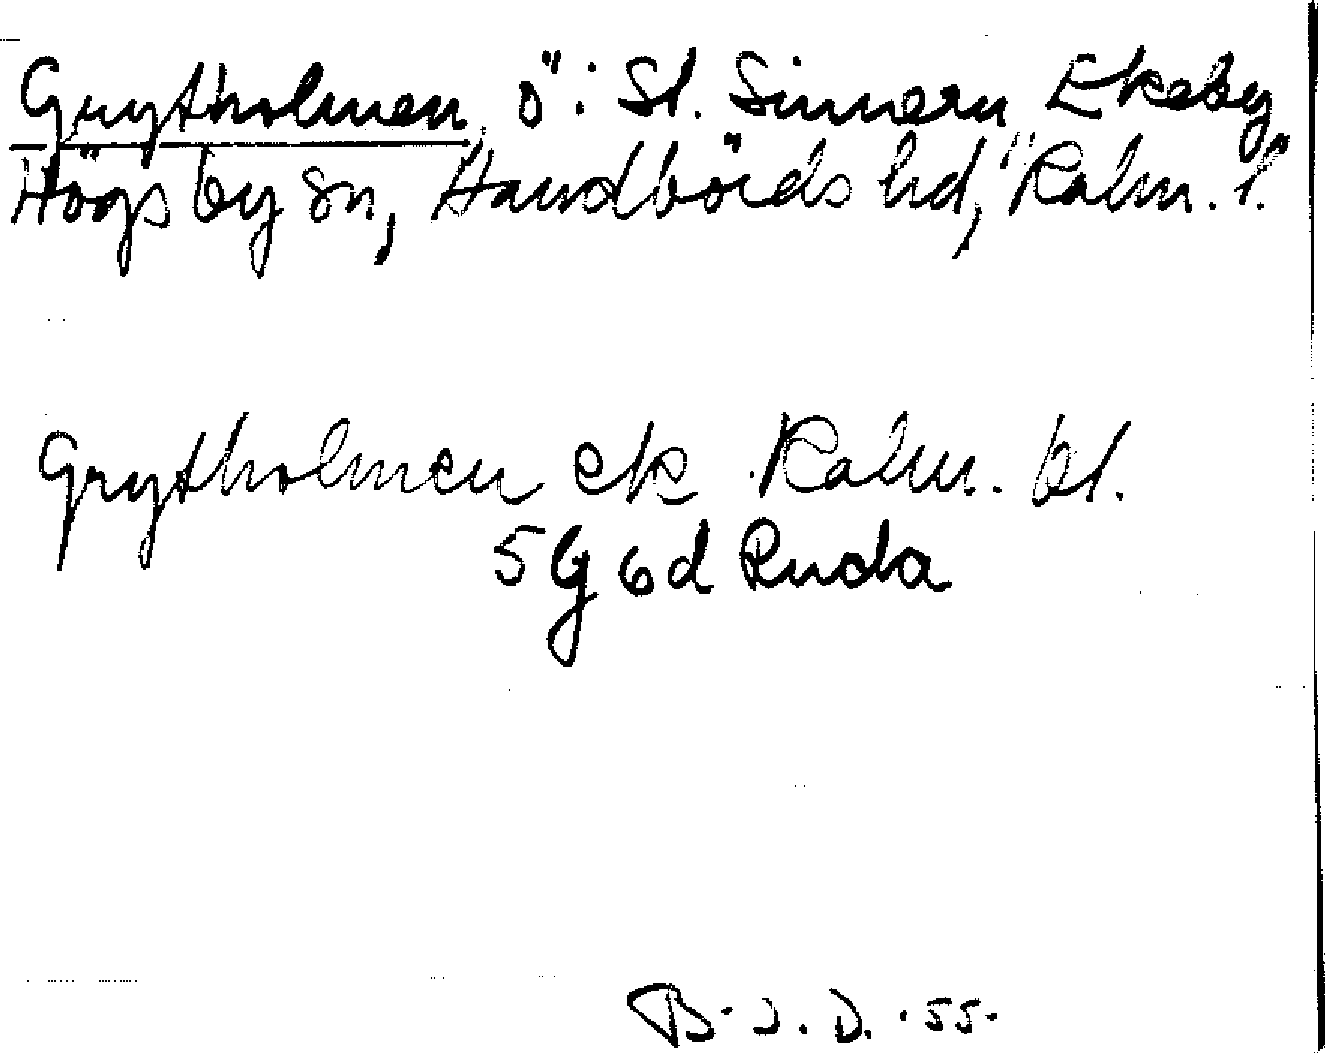 Grytholmen, ö i St. Sinnern, Ekeby
Högsby sn, Handbörds hd, Kalm. l.
Grytholmen ek Kalm. bl.
5G 6d Ruda
B. J. D. -55-